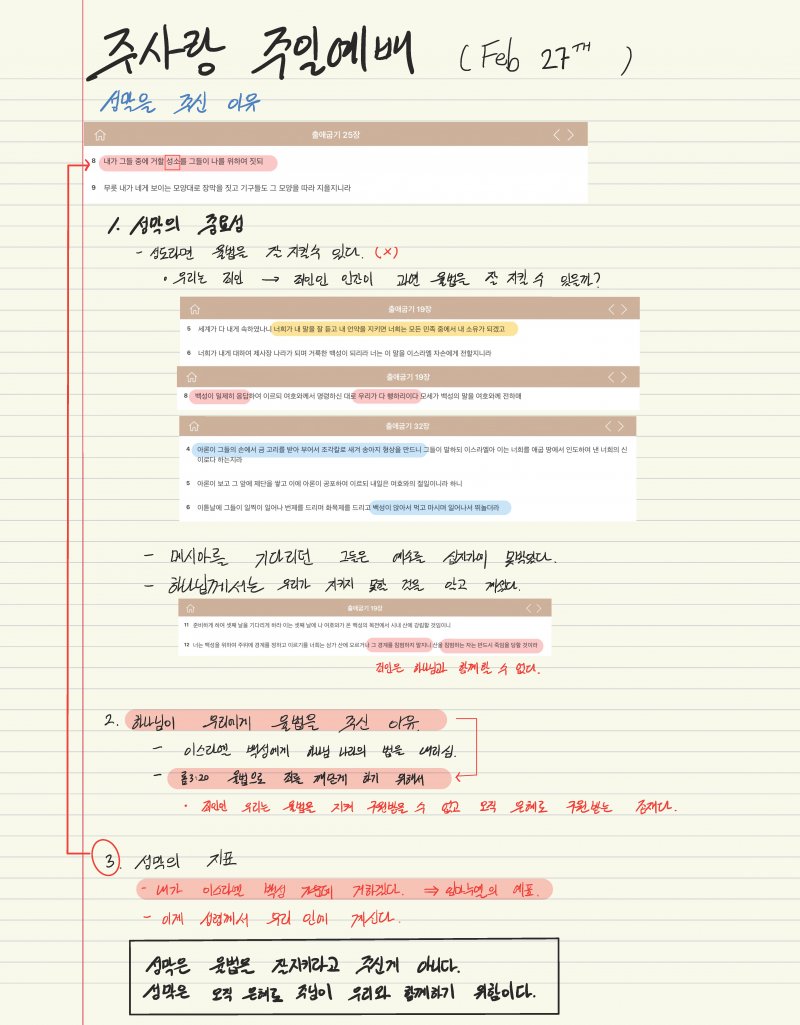 주사랑 주일예배 (Feb 27th)
성막을 주신 이유
출애굽기 25장
8 내가 그들 중에 거할 성소를 그들이 나를 위하여 짓되
9 무릇 내가 네게 보이는 모양대로 장막을 짓고 기구들도 그 모양을 따라 지을지니라
1. 성막의 중요성
- 성도라면 율법을 잘 지킬수 있다. (x)
• 우리는 죄인 → 죄인인 인간이 과연 율법을 잘 지킬 수 있을까?
출애굽기 19장
5 세계가 다 내게 속하였나니 너희가 내 말을 잘 듣고 내 언약을 지키면 너희는 모든 민족 중에서 내 소유가 되겠고
6 너희가 내게 대하여 제사장 나라가 되며 거룩한 백성이 되리라 너는 이 말을 이스라엘 자손에게 전할지니라
출애굽기 19장
8 백성이 일제히 응답하여 이르되 여호와께서 명령하신 대로 우리가 다 행하리이다 모세가 백성의 말을 여호와께 전하매
출애굽기 32장
4 아론이 그들의 손에서 금 고리를 받아 부어서 조각칼로 새겨 송아지 형상을 만드니 그들이 말하되 이스라엘아 이는 너희를 애굽 땅에서 인도하여 낸 너희의 신
이로다 하는지라
5 아론이 보고 그 앞에 제단을 쌓고 이에 아론이 공포하여 이르되 내일은 여호와의 절일이니라 하니
6 이튿날에 그들이 일찍이 일어나 번제를 드리며 화목제를 드리고 백성이 앉아서 먹고 마시며 일어나서 뛰놀더라
- 메시아를 기다리던 그들은 예수를 십자가에 못박았다.
- 하나님께서는 우리가 지키지 못할 것을 알고 계셨다.
출애굽기 19장
11 준비하게 하여 셋째 날을 기다리게 하라 이는 셋째 날에 나 여호와가 온 백성의 목전에서 시내 산에 강림할 것임이니
12 너는 백성을 위하여 주위에 경계를 정하고 이르기를 너희는 삼가 산에 오르거나 그 경계를 침범하지 말지니 산을 침범하는 자는 반드시 죽임을 당할 것이라
죄인은 하나님과 함께할 수 없다.
2. 하나님이 우리에게 율법을 주신 이유.
- 이스라엘 백성에게 하나님 나라의 법을 내리심.
- 롬3:20 율법으로 죄를 깨닫게 하기 위해서
• 죄인인 우리는 율법을 지켜 구원받을 수 없고 오직 은혜로 구원받는 존재다.
3. 성막의 지표
- 내가 이스라엘 백성 가운데 거하겠다. ⇒ 임마누엘의 예표.
- 이제 성령께서 우리 안에 계신다.
성막은 율법을 잘지키라고 주신게 아니다.
성막은 오직 은혜로 주님이 우리와 함께하기 위함이다.